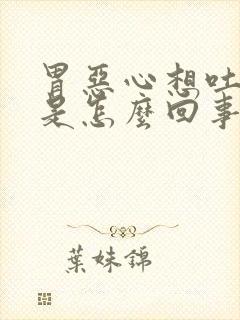 胃惡心想吐
是怎麼回事
葉妹錦